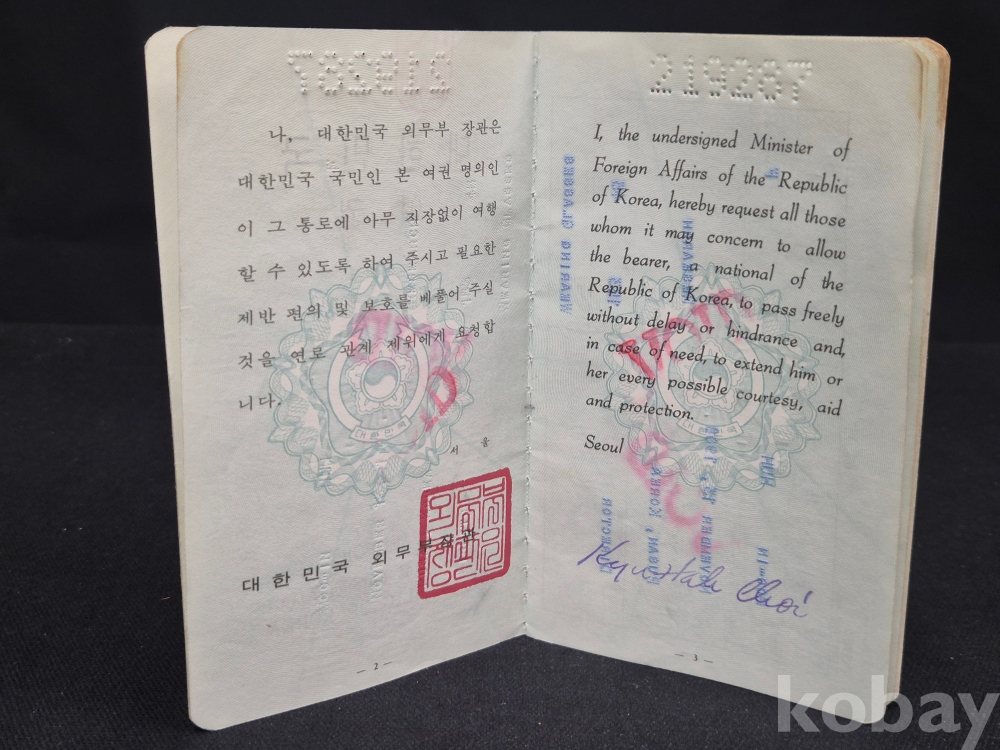 나, 대한민국 외무부 장관은
대한민국 국민인 본 여권 명의인
이 그 통로에 아무 직장없이 여행
할 수 있도록 하여 주시고 필요한
제반 편의 및 보호를 베풀어 주실
것을 연로 관계 제위에게 요청합
니다.
대한민국
서 울
대한민국 외무부장관
— 2 —
219287
I, the undersigned Minister of
Foreign Affairs of the Republic
of Korea, hereby request all those
whom it may concern to allow
the bearer, a national of the
Republic of Korea, to pass freely
without delay or hindrance and,
in case of need, to extend him or
her every possible courtesy, aid
and protection.
Seoul
Kyu Hah Choi
— 3 —
kobay